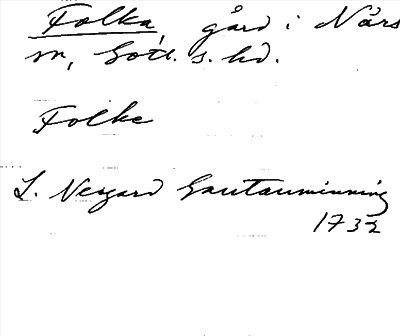 Folka, gård i Närs
sn, Gotl. s. hd.
Folke
L. Nergard Gautauminning
1732